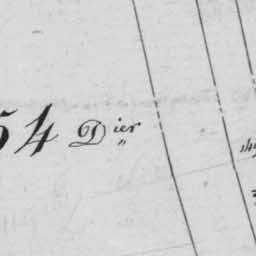 54 D^ier